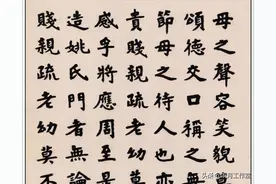 母之聲容笑貌
頌德交口稱之
節母之待人也
貴賤親疏老幼莫
感孚將應周至是
造姚氏門者無論
賤親疏老幼莫不